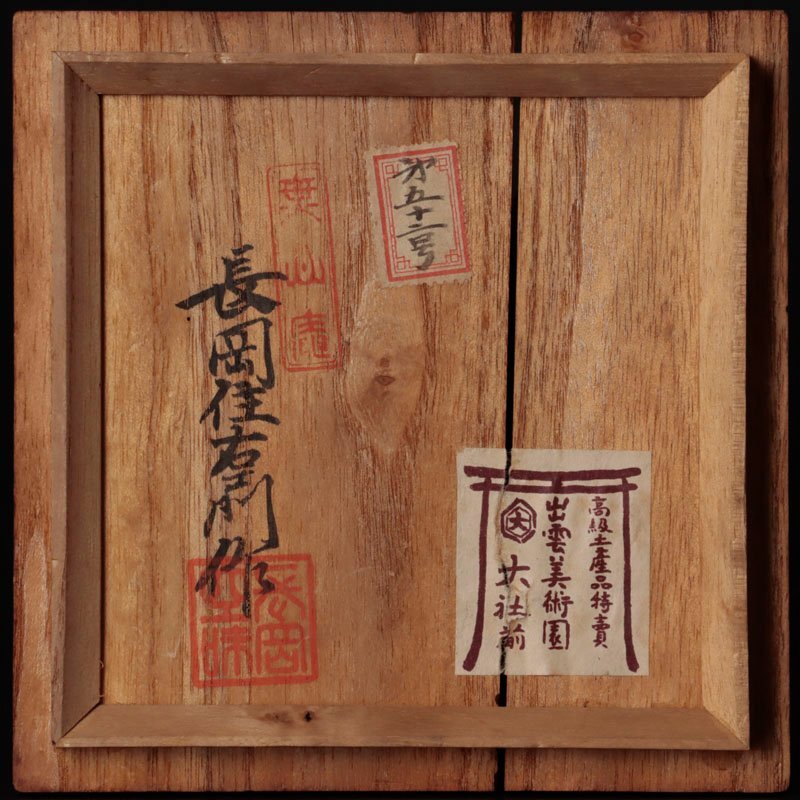 第五十二号
樂山窯
長岡住右衛門作
長岡
空味
高級土産品特賣
出雲美術園
大
大社前